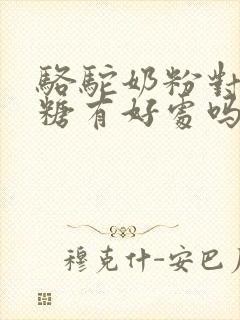 駱駝奶粉對
糖有好處吗
穆克什-安巴